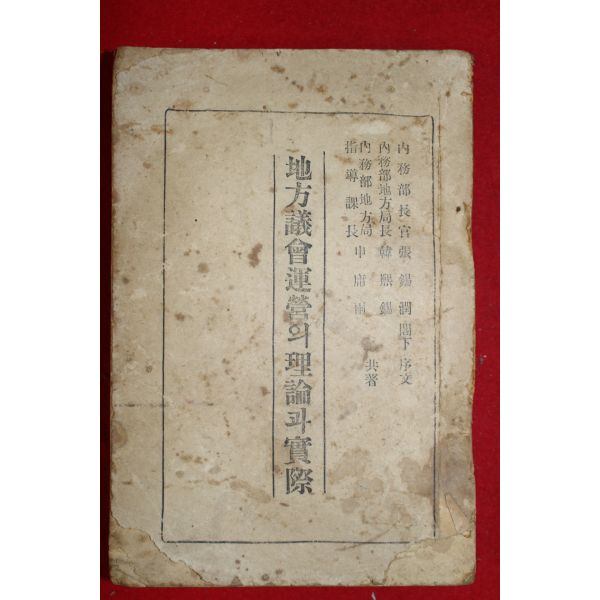 內務部長官 張錫潤 閣下 序文
內務部地方局長 韓熙錫
內務部地方局
指導課長 申 雨
共著
地方議會運營의理論과實際